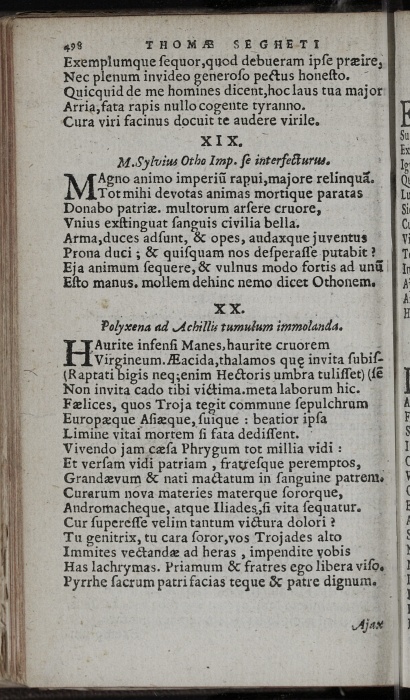 498 THOMÆ SEGHETI
Exemplumque ſequor, quod debueram ipſe præire,
Nec plenum invideo generoſo pectus honeſto.
Quicquid de me homines dicent, hoc laus tua major
Arria, fata rapis nullo cogente tyranno.
Cura viri facinus docuit te audere virile.
XIX.
M. Sylvius Otho Imp. ſe interfecturus.
MAgno animo imperiū rapui, majore relinquā.
Tot mihi devotas animas mortique paratas
Donabo patriæ. multorum arſere cruore,
Vnius exſtinguat ſanguis civilia bella.
Arma, duces adſunt, & opes, audaxque juventus
Prona duci; & quiſquam nos deſperaſſe putabit?
Eja animum ſequere, & vulnus modo fortis ad unū
Eſto manus. mollem dehinc nemo dicet Othonem.
XX.
Polyxena ad Achillis tumulum immolanda.
HAurite infenſi Manes, haurite cruorem
Virgineum. Æacida, thalamos quę invita ſubiſ-
(Raptati bigis neq; enim Hectoris umbra tuliſſet) (ſē
Non invita cado tibi victima. meta laborum hic.
Fælices, quos Troja tegit commune ſepulchrum
Europæque Aſiæque, ſuique: beatior ipſa
Limine vitai mortem ſi fata dediſſent.
Vivendo jam cæſa Phrygum tot millia vidi:
Et verſam vidi patriam, fratreſque peremptos,
Grandævum & nati mactatum in ſanguine patrem.
Curarum nova materies materque ſororque,
Andromacheque, atque Iliades, ſi vita ſequatur.
Cur ſupereſſe velim tantum victura dolori?
Tu genitrix, tu cara ſoror, vos Trojades alto
Immites vectandæ ad heras, impendite vobis
Has lachrymas. Priamum & fratres ego libera viſo.
Pyrrhe ſacrum patri facias teque & patre dignum.
Ajax